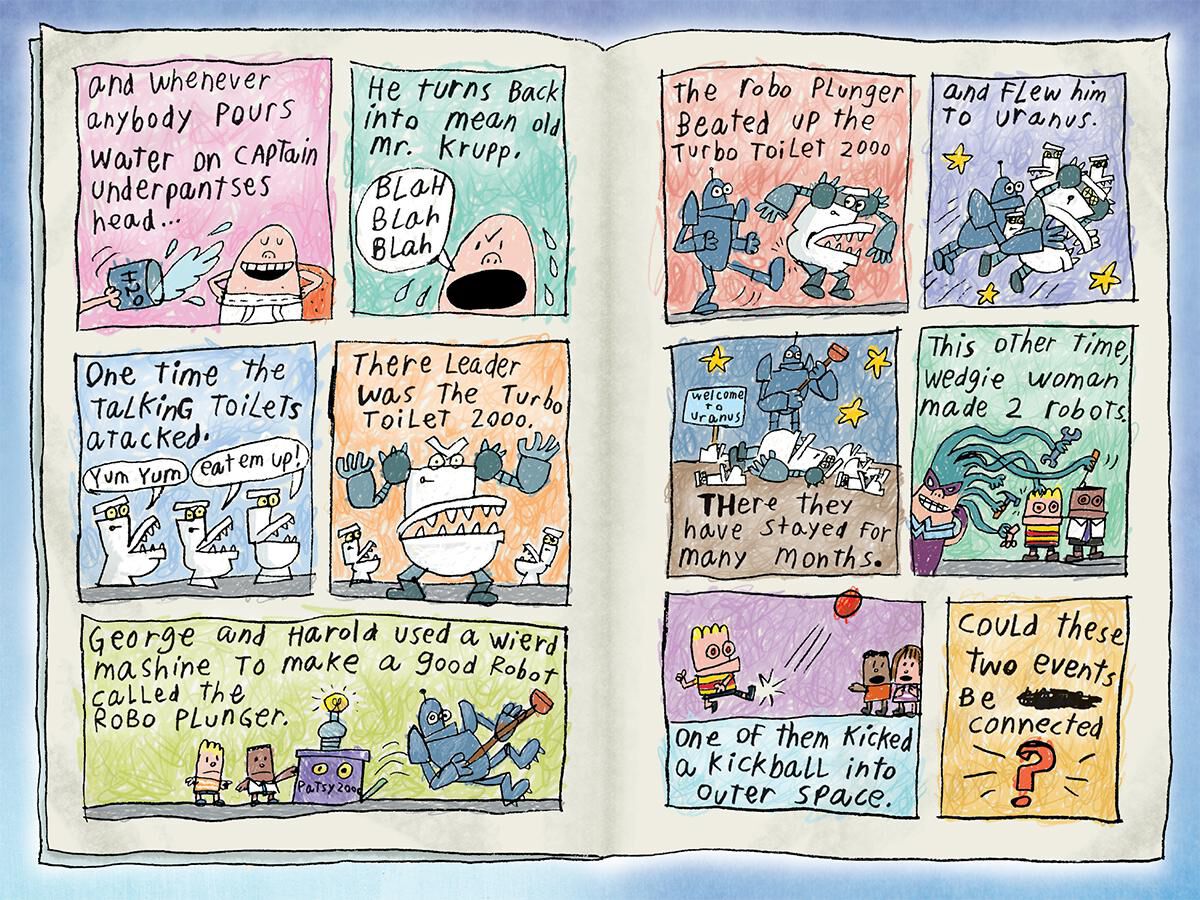 and whenever
anybody pours
water on CAPTain
underpantses
head...
H2O
He turns Back
into mean old
mr. Krupp.
BLaH
BLah
BLah
One time the
TaLKinG ToiLeTs
atacked.
Yum Yum
eat em up!
There Leader
was The Turbo
ToiLeT 2000.
George and Harold used a wierd
mashine To make a good Robot
called the
RoBo PLunger.
Patsy 2000
the robo PLunger
Beated up the
Turbo ToiLet 2000
and FLew him
To uranus.
welcome
to
uranus
THere they
have stayed For
many months.
This other time,
wedgie woman
made 2 robots.
one of them Kicked
a kickball into
outer space.
Could these
Two events
Be
connected
?